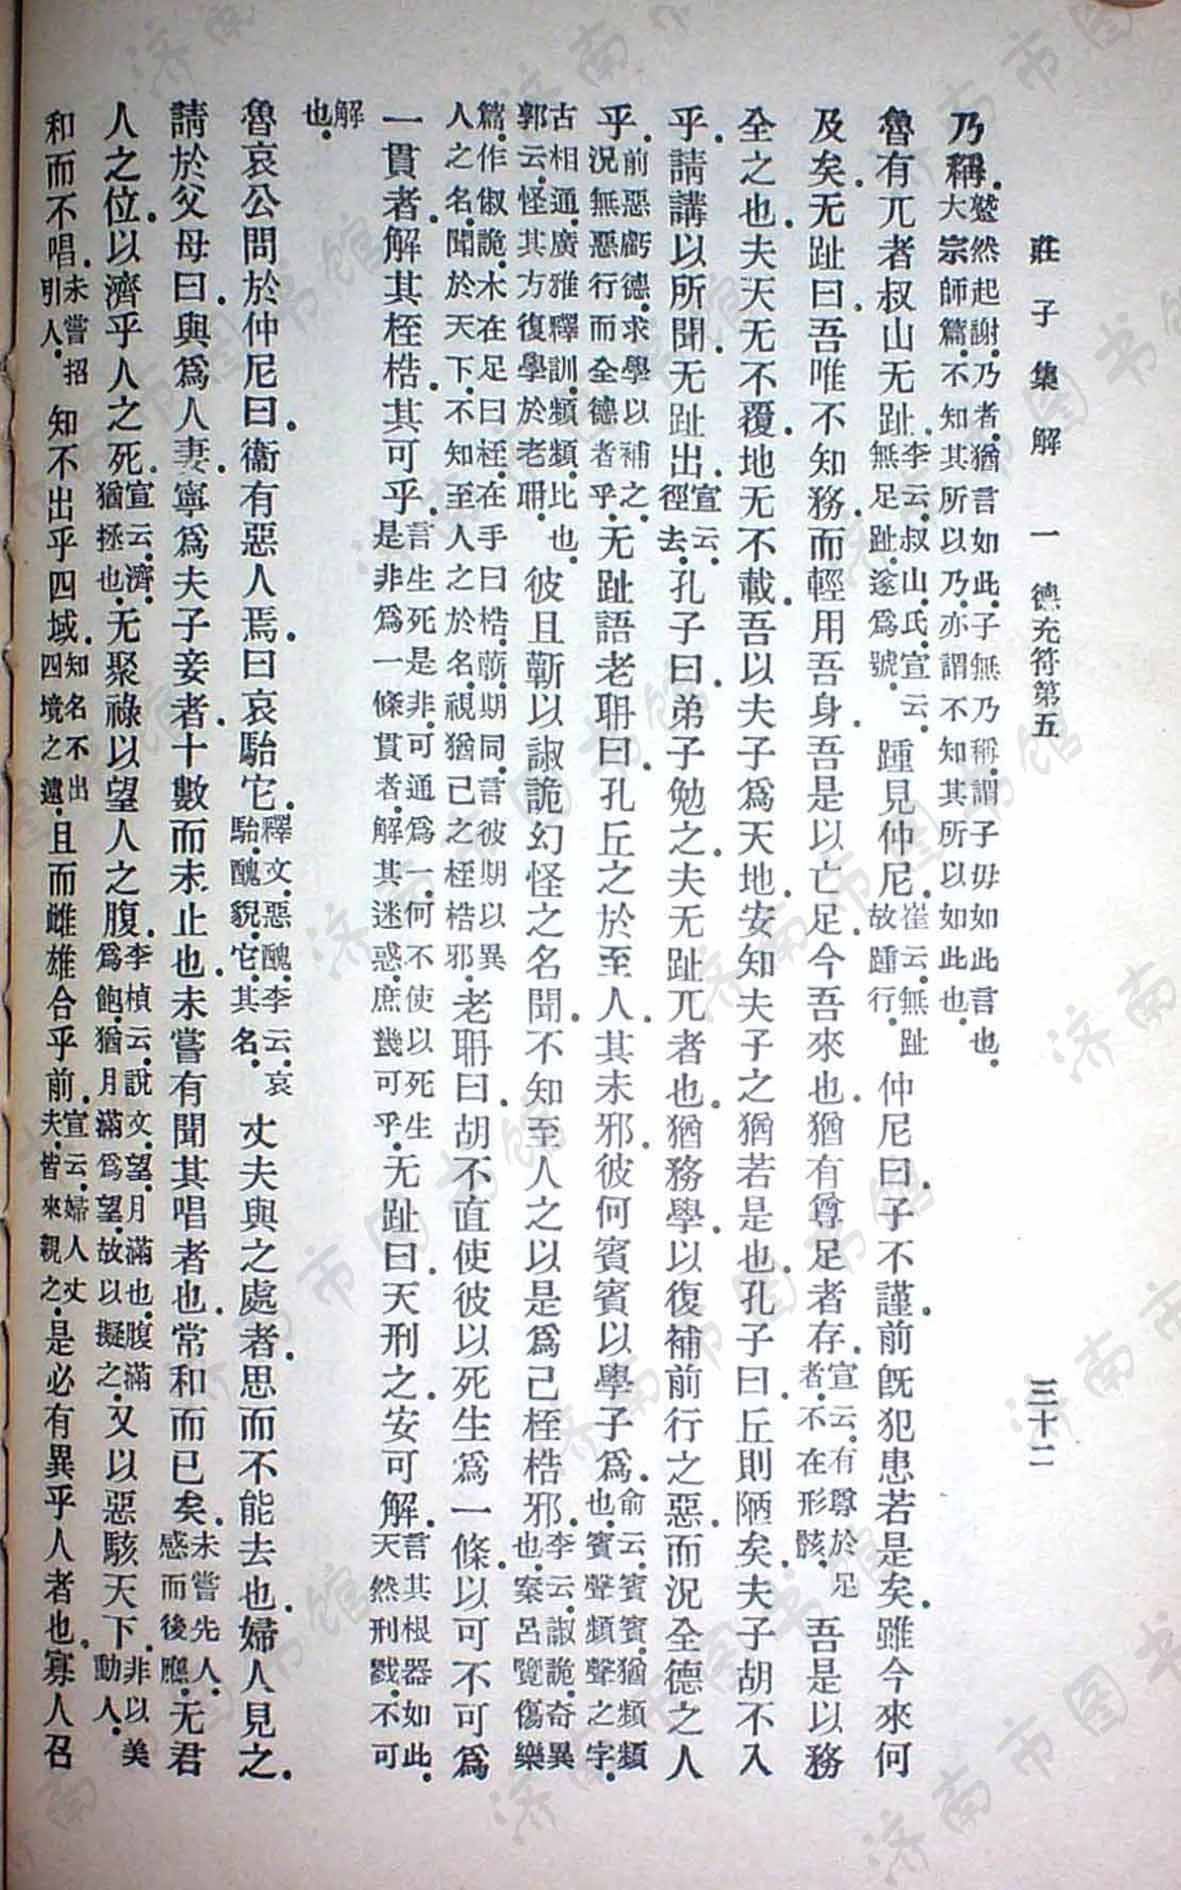 莊子集解　一　德充符第五　三十二
乃稱。蹵然起謝。乃者。猶言如此。子無乃稱。謂子毋如此言也。大宗師篇。不知其所以乃。亦謂不知其所以如此也。
魯有兀者叔山无趾。李云。叔山。氏。宣云。無足趾。遂爲號。踵見仲尼。崔云。無趾故踵行。仲尼曰。子不謹。前旣犯患若是矣。雖今來何
及矣。无趾曰。吾唯不知務。而輕用吾身。吾是以亡足。今吾來也。猶有尊足者存。宣云。有尊於足者。不在形骸。吾是以務
全之也。夫天无不覆。地无不載。吾以夫子爲天地。安知夫子之猶若是也。孔子曰。丘則陋矣。夫子胡不入
乎。請講以所聞。无趾出。宣云。徑去。孔子曰。弟子勉之。夫无趾兀者也。猶務學。以復補前行之惡。而況全德之人
乎。前惡虧德。求學以補之。況無惡行而全德者乎。无趾語老聃曰。孔丘之於至人。其未邪。彼何賓賓以學子爲。俞云。賓賓。猶頻頻也。賓聲頻聲之字。
古相通。廣雅釋訓。頻頻。比也。郭云。怪其方復學於老聃。彼且蘄以諔詭幻怪之名聞。不知至人之以是爲己桎梏邪。李云。諔詭。奇異也。案呂覽傷樂
篇。作俶詭。木在足曰桎。在手曰梏。蘄。期同。言彼期以異人之名。聞於天下。不知至人之於名。視猶己之桎梏邪。老聃曰。胡不直使彼以死生爲一條。以可不可爲
一貫者。解其桎梏。其可乎。言生死是非。可通爲一。何不使以死生是非爲一條貫者。解其迷惑。庶幾可乎。无趾曰。天刑之。安可解。言其根器如此。天然刑戮。不可
解也。
魯哀公問於仲尼曰。衞有惡人焉。曰哀駘它。釋文。惡。醜。李云。哀駘。醜貌。它。其名。丈夫與之處者。思而不能去也。婦人見之。
請於父母曰。與爲人妻。寧爲夫子妾者。十數而未止也。未嘗有聞其唱者也。常和而已矣。未嘗先人。感而後應。无君
人之位。以濟乎人之死。宣云。濟。猶拯也。无聚祿以望人之腹。李楨云。說文。望。月滿也。腹滿爲飽。猶月滿爲望。故以擬之。又以惡駭天下。非以美動人。
和而不唱。未嘗招引人。知不出乎四域。知名不出四境之遠。且而雌雄合乎前。宣云。婦人丈夫。皆來親之。是必有異乎人者也。寡人召
济南市图书馆